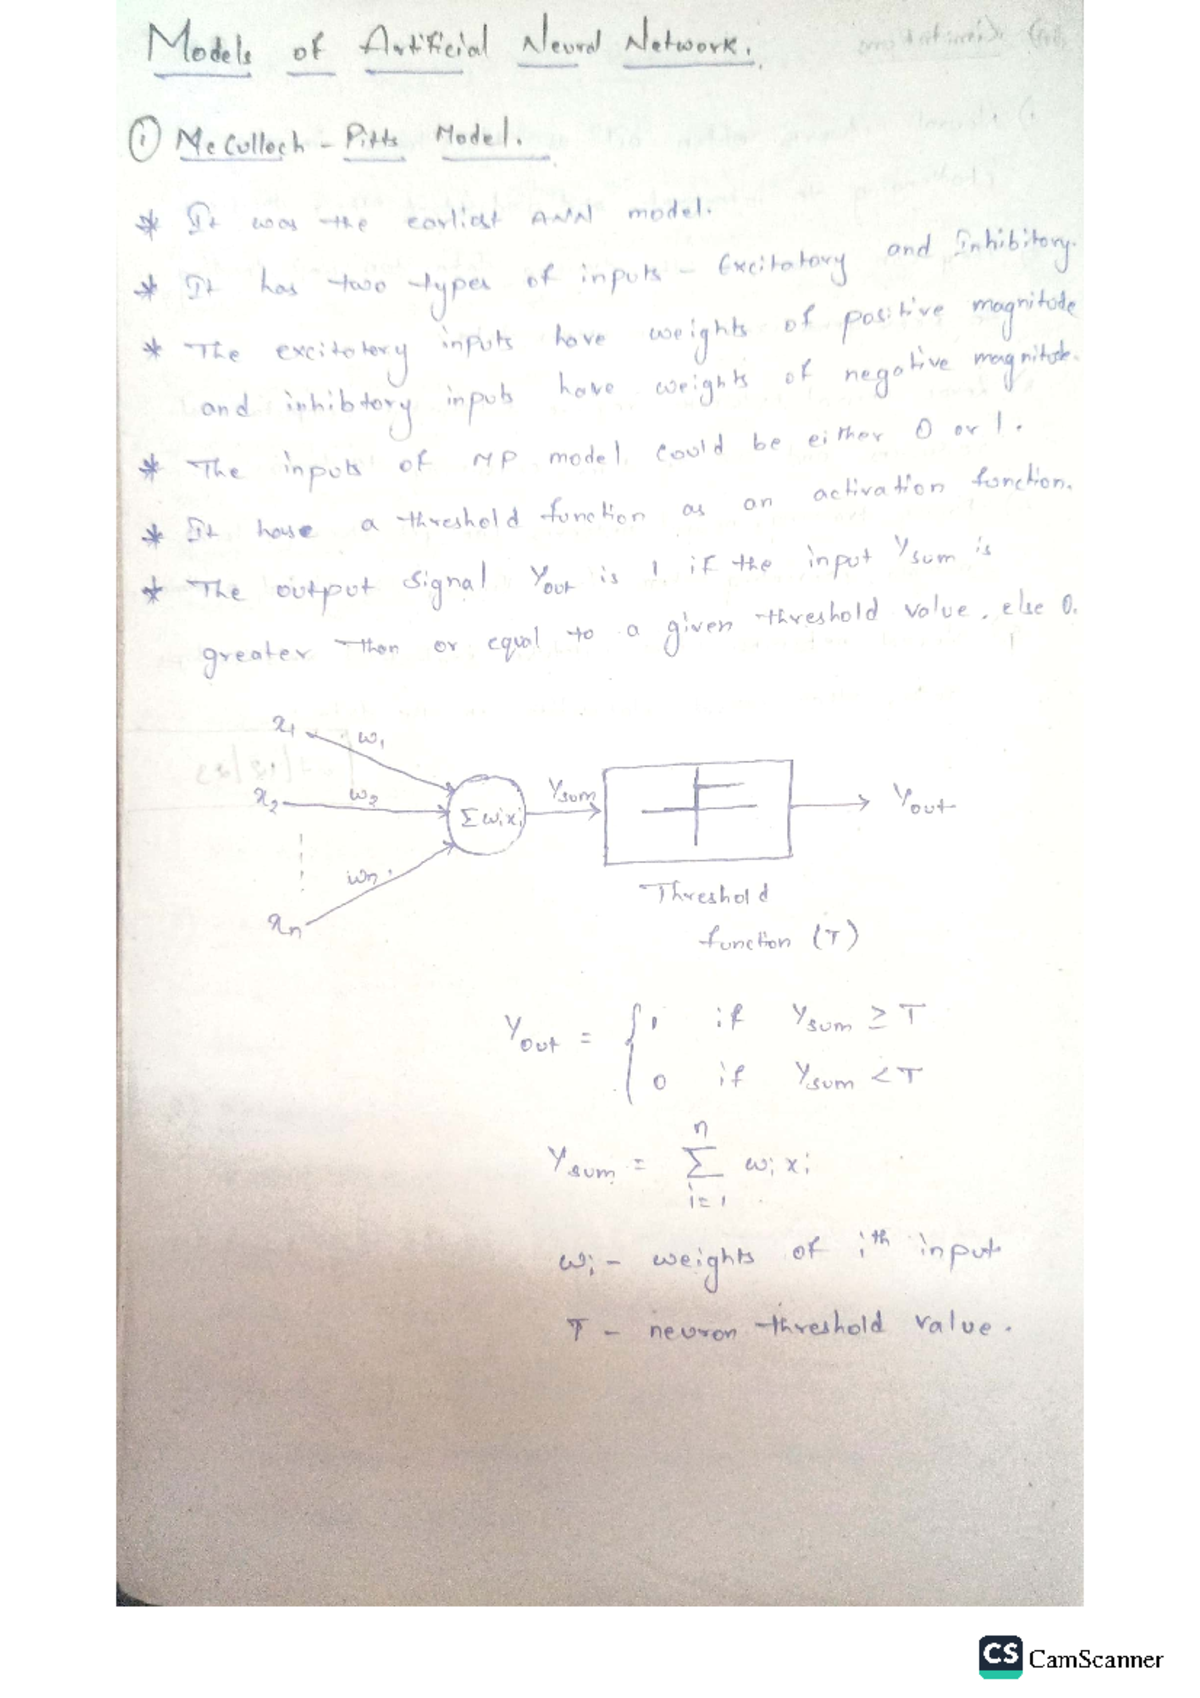 Models of Artificial Neural Network.
① McCulloch - Pitts Model.
* It was the earliest ANN model.
* It has two types of inputs - Excitatory and Inhibitory.
* The excitotory inputs have weights of positive magnitude
and inhibtory inputs have weights of negative magnitude.
* The inputs of MP model could be either 0 or 1.
* It house a threshold function as an activation function.
* The output signal Yout is 1 if the input Ysum is
greater than or equal to a given threshold value, else 0.
x1 w1
x2 w2 Σwixi Ysum Yout
wn
xn
Threshold
function (T)
Yout = { 1 if Ysum ≥ T
0 if Ysum < T
n
Ysum = Σ wi xi
i=1
wi - weights of ith input
T - neuron threshold value.
CS CamScanner